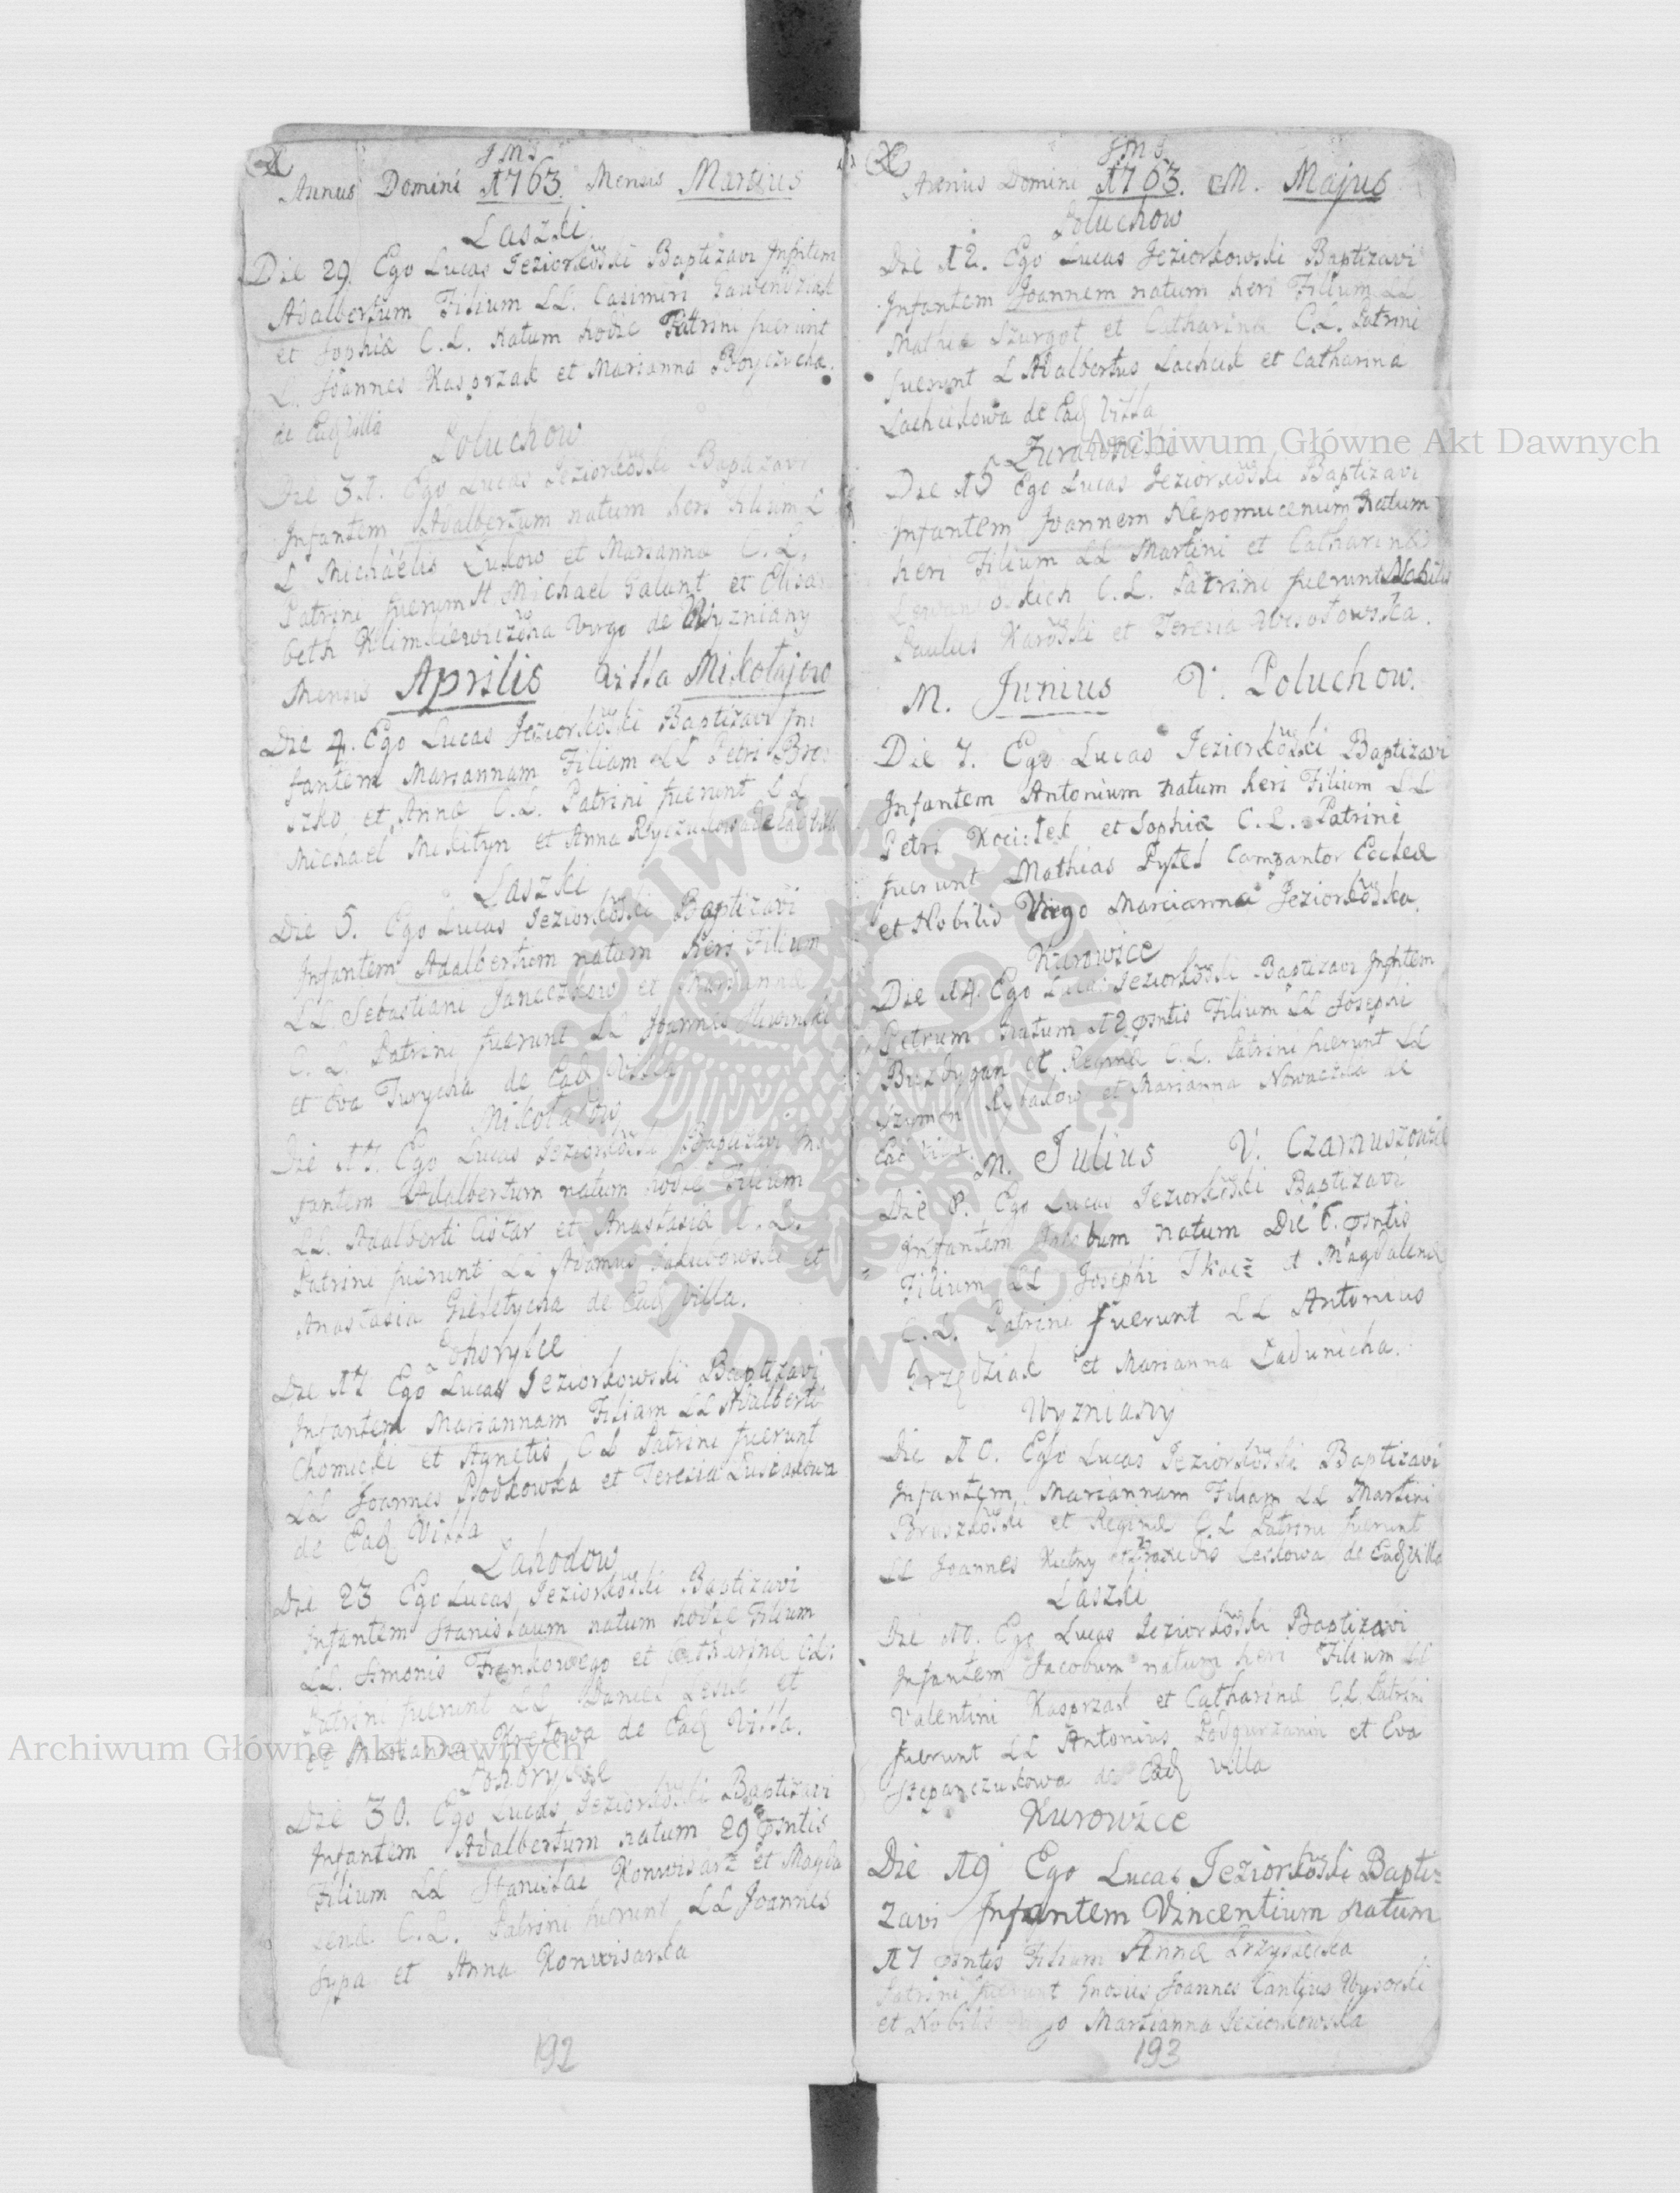 J M J
Annus Domini 1763 Mensis Martius
Laszki
Die 29. Ego Lucas Jeziorkowski Baptizavi Infntem
Adalbertum Filium LL. Casimiri Gawendziak
et Sophiæ C.L. natum hodie Patrini fuerunt
L. Joannes Kasprzak et Marianna Boyczucha
de Eadq Villa
Poluchow
Die 31. Ego Lucas Jeziorkowski Baptizavi
Infantem Adalbertum natum heri Filium L
L Michaëlis Żukow et Mariannæ C. L.
Patrini fuerunt Michael Galant et Elisa
beth Klimkiewiczowna Virgo de Wyzniany
Mensis Aprilis Villa Mikołajow
Die 4. Ego Lucas Jeziorkowski Baptizavi In
fantem Mariannam Filiam LL Petri Bro
szko et Annæ C.L. Patrini fuerunt LL
Michael Mikityn et Anna Ryczukowa de Eadq Villa
Laszki
Die 5. Ego Lucas Jeziorkowski Baptizavi
Infantem Adalbertum natum heri Filium
LL Sebastiani Janeczkow et Mariannæ
C. L. Patrini fuerunt LL Joannes Sliwinski
et Eva Turycha de Eadq Villa
Mikołajow
Die 17. Ego Lucas Jeziorkowski Baptizavi In
fantem Adalbertum natum hodie Filium
LL. Adalberti Cistar et Anastasiæ C. L.
Patrini fuerunt LL Adamus Jakubowski et
Anastasia Gieletycha de Eadq Villa.
Pohorylce
Die 17 Ego Lucas Jeziorkowski Baptizavi
Infantem Mariannam Filiam LL Adalberti
Chomicki et Agnetis C L Patrini fuerunt
LL Joannes Podkowka et Teresia Lusiakowa
de Eadq Villa
Lahodow
Die 23 Ego Lucas Jeziorkowski Baptizavi
Infantem Stanislaum natum hodie Filium
LL. Simonis Frankowego et Catharinæ C.L.
Patrini fuerunt LL Daniel Lesuk et
et Marianna Kretowa de Eadq Villa.
Pohorylce
Die 30. Ego Lucas Jeziorkowski Baptizavi
Infantem Adalbertum natum 29 psntis
Filium LL Stanislai Konwisarz et Magda
lenæ C.L. Patrini fuerunt LL Joannes
Sypa et Anna Konwisarka
192
J M J
Annus Domini 1763. M. Majus
Poluchow
Die 12. Ego Lucas Jeziorkowski Baptizavi
Infantem Joannem natum heri Filium LL
Mathiæ Szurgot et Catharinæ C.L. Patrini
fuerunt L Adalbertus Lachcik et Catharina
Lachcikowa de Eadq Villa
Die 15 Ego Lucas Jeziorkowski Baptizavi
Infantem Joannem Nepomucenum Natum
heri Filium LL Martini et Catharinæ
C.L. Patrini fuerunt Nobilis
Paulus Karowski et Teresia Wesołowska.
M. Junius V. Poluchow.
Die 7. Ego Lucas Jeziorkowski Baptizavi
Infantem Antonium natum heri Filium LL
Petri Kociołek et Sophiæ C.L. Patrini
fuerunt Mathias Pytel Campantor Eccleæ
et Nobilis Virgo Marianna Jeziorkowska
Kurowice
Die 14. Ego Lucas Jeziorkowski Baptizavi Infntem
Petrum natum 12 psntis Filium LL Josephi
Buzdygan et Reginæ C.L. Patrini fuerunt LL
Szymon Rybakow et Marianna Nowaczka de
Eadq Villa.
M. Julius V. Czarnuszowice
Die 8. Ego Lucas Jeziorkowski Baptizavi
Infantem Jacobum natum Die 6. psntis
Filium LL Josephi Tkacz et Magdalenæ
C.L. Patrini fuerunt LL Antonius
Grzędziak et Marianna Ładunicha.
Wyzniany
Die 10. Ego Lucas Jeziorkowski Baptizavi
Infantem Mariannam Filiam LL Martini
Bruszkowski et Reginæ C.L Patrini fuerunt
LL Joannes Kutny et Leskowa de Eadq Villa
Laszki
Die 10. Ego Lucas Jeziorkowski Baptizavi
Infantem Jacobum natum heri Filium LL
Valentini Kasprzak et Catharinæ C.L. Patrini
fuerunt LL Antonius Podgurzanin et Eva
Szepanczukowa de Eadq Villa
Kurowice
Die 19 Ego Lucas Jeziorkowski Bapti=
zavi Infantem Vincentium natum
17 psntis Filium Annæ Przysiecka
Patrini fuerunt Gnosus Joannes Cantius Wysocki
et Nobilis Virgo Marianna Jeziorkowska
193
Archiwum Główne Akt Dawnych
Archiwum Główne Akt Dawnych
ARCHIWUM GŁÓWNE AKT DAWNYCH